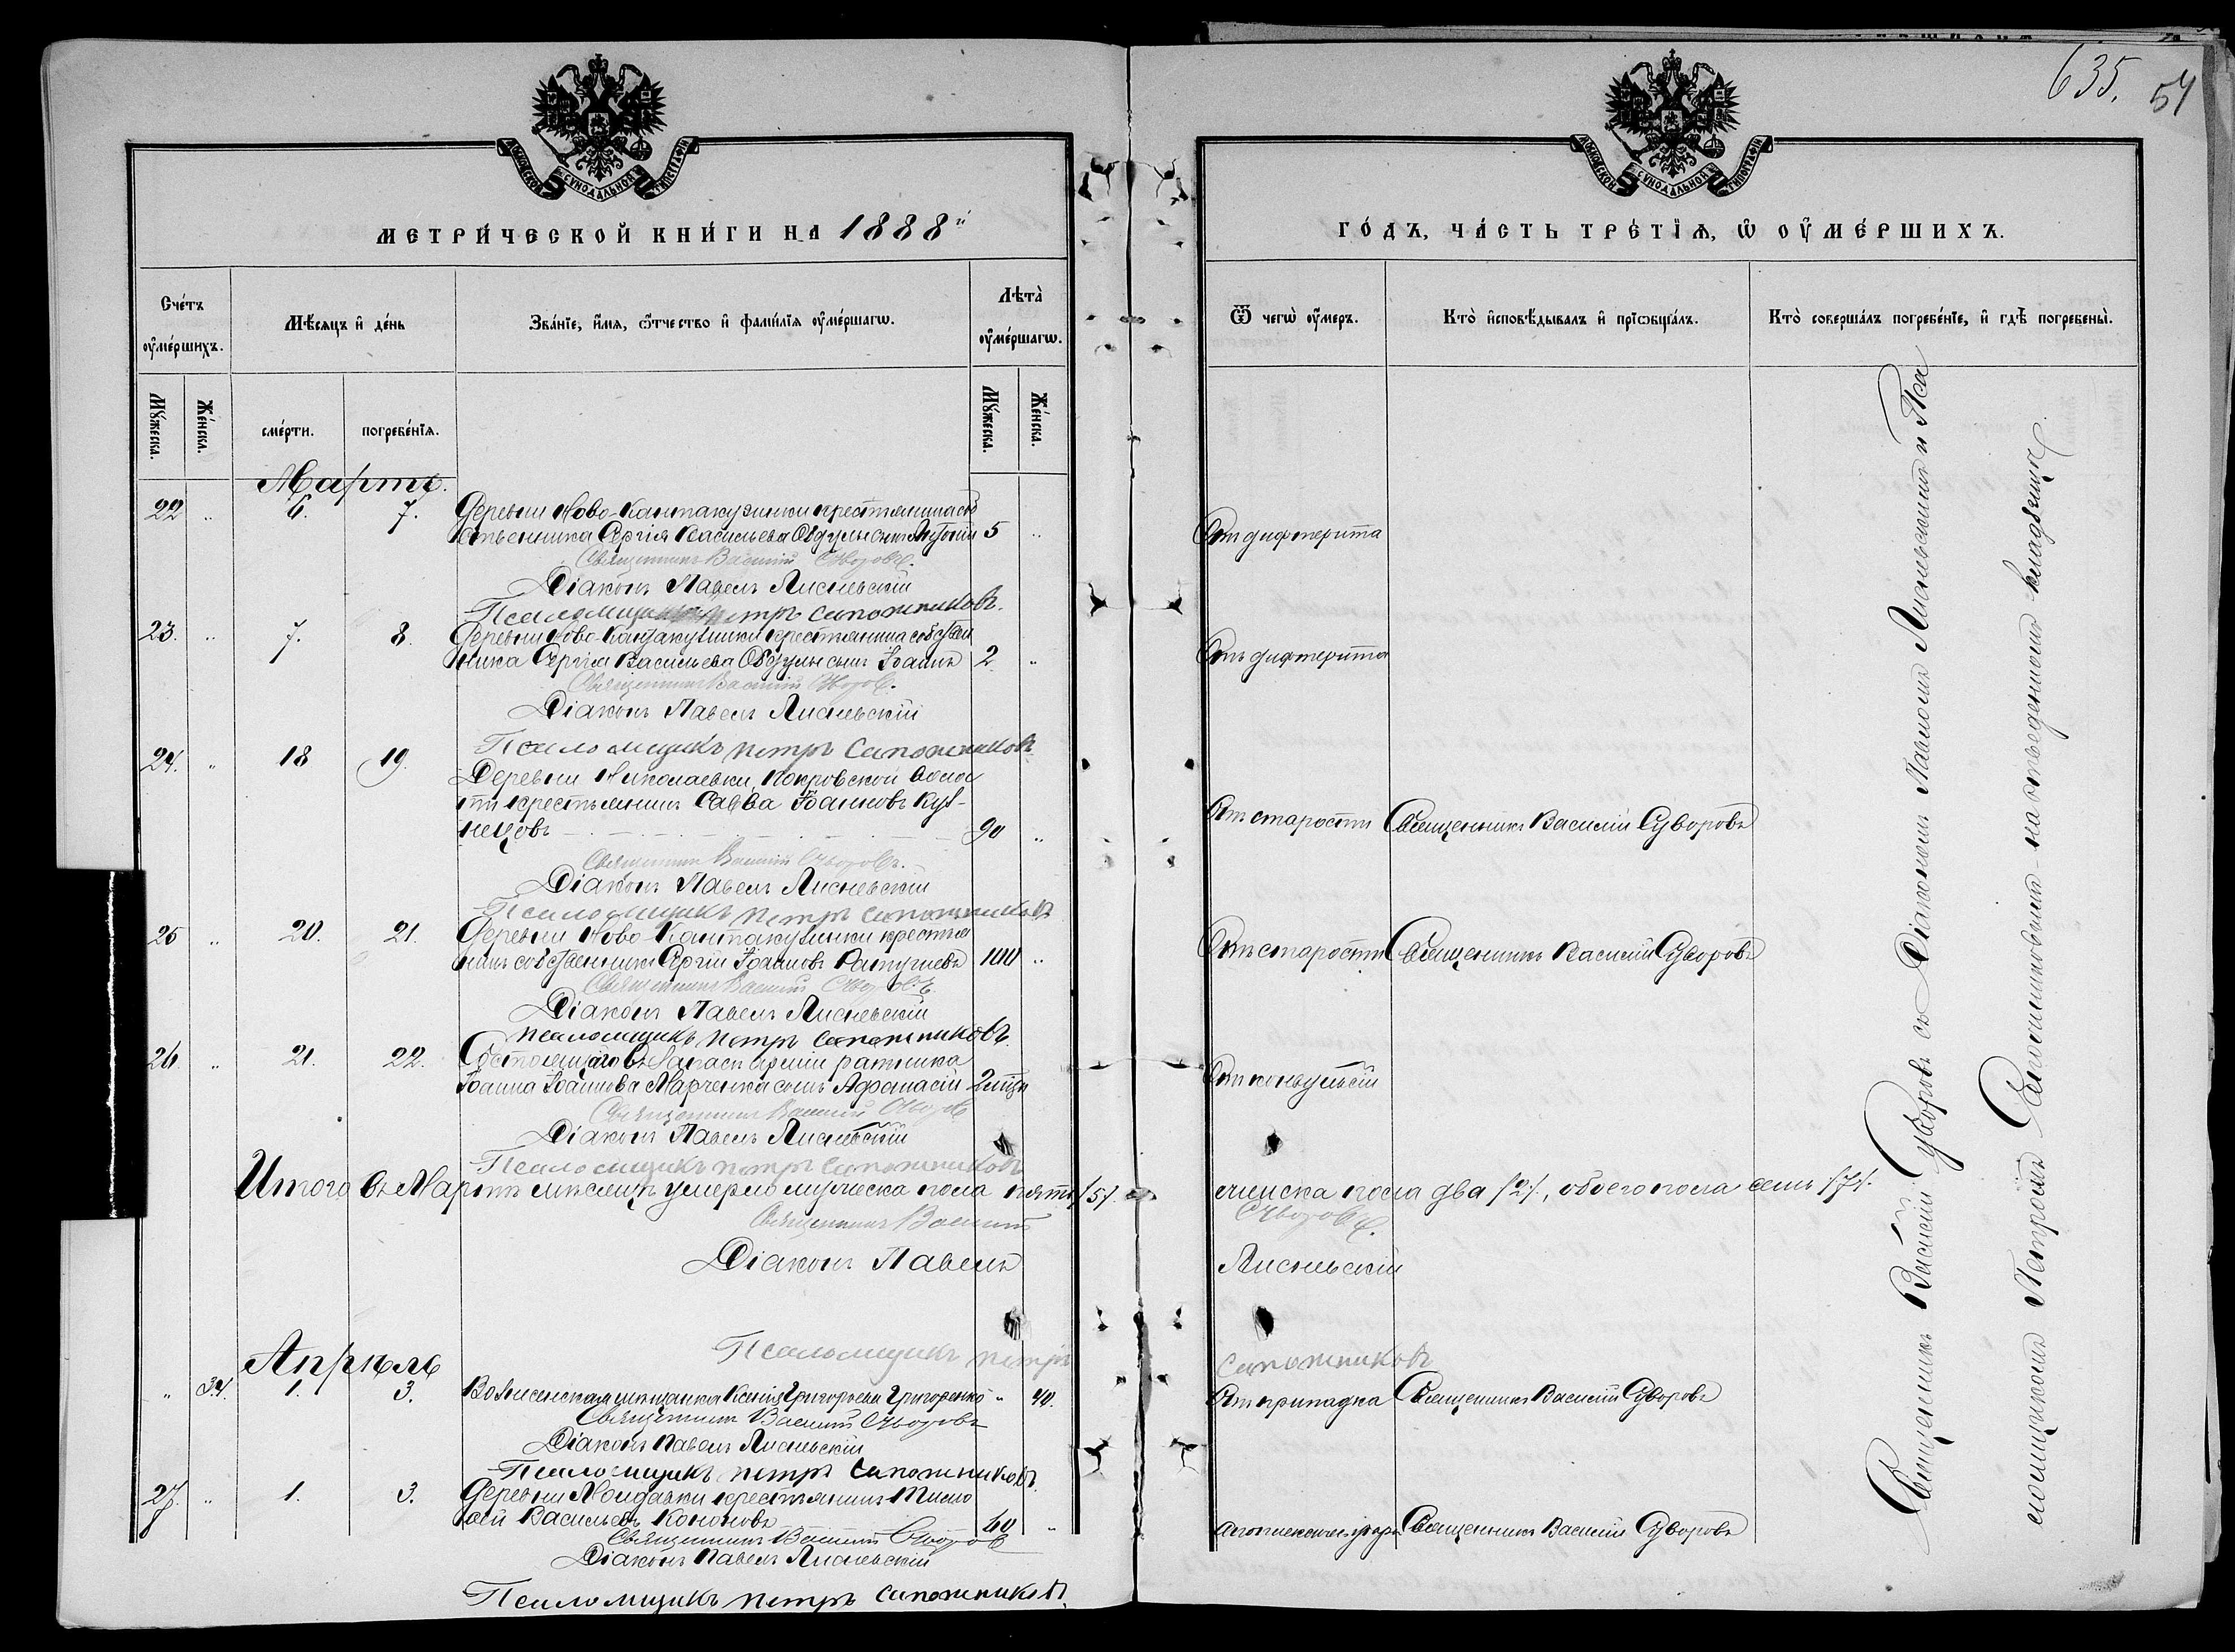 635. 54
МОСКОВСКОЙ СѴНОДАЛЬНОЙ ТИПОГРАФІИ
МОСКОВСКОЙ СѴНОДАЛЬНОЙ ТИПОГРАФІИ
МЕТРИ́ЧЕСКОЙ КНИ́ГИ НА 1888й
ГО́ДЪ, ЧА́СТЬ ТРЕ́ТІѦ, Ѡ ОУ҆МЕ́РШИХЪ.
Сче́тъ оу҆ме́ршихъ.
Мѣ́сяцъ и҆ де́нь
Зва́нїе, и҆́мѧ, ѻ҆́тчество и҆ фами́лїѧ оу҆ме́ршагѡ.
Лѣта̀ оу҆ме́ршагѡ.
Ѿ чегѡ̀ оу҆́меръ.
Кто̀ и҆сповѣ́дывалъ и҆ прїѡбща́лъ.
Кто̀ соверша́лъ погребе́нїе, и҆ гдѣ̀ погребены̀.
Мꙋ́жеска. Же́нска. сме́рти. погребе́нїѧ. Мꙋ́жеска. Же́нска.
Мартъ.
22 " 6. 7. Деревни Ново-Кантакузинки крестьянина соб
ственника Сергія Васильева Обдулы сынъ 5 " От дифтерита
Священникъ Василій Суворовъ.
Діаконъ Павелъ Лисневскій
Псаломщикъ Петръ Сапожниковъ.
23. " 7. 8. Деревни Ново-Кантакузинки крестьянина собствен
ника Сергія Васильева Обдулы сынъ Іоаннъ 2. " Отъ дифтерита
Священникъ Василій Суворовъ.
Діаконъ Павелъ Лисневскій
Псаломщикъ Петръ Сапожниковъ
24. " 18 19. Деревни Николаевки, Покровской волос
ти крестьянинъ Савва Іоанновъ Куз-
нецовъ 90 " От старости Священникъ Василій Суворовъ
Священникъ Василій Суворовъ.
Діаконъ Павелъ Лисневскій
Псаломщикъ Петръ Сапожниковъ
25 " 20. 21. Деревни Ново-Кантакузинки крестья
нинъ собственникъ Сергій Іоанновъ 100 " Отъ старости Священникъ Василій Суворовъ
Священникъ Василій Суворовъ
Діаконъ Павелъ Лисневскій
Псаломщикъ Петръ Сапожниковъ.
26. " 21. 22. Состоящаго въ запасѣ арміи ратника
Іоанна Іоаннова Марченка сынъ Афанасій От конвульсій
Священникъ Василій Суворовъ
Діаконъ Павелъ Лисневскій
Псаломщикъ Петръ Сапожниковъ
Итого въ Мартѣ мѣсяцѣ умерло мужеска пола пять /5/. женска пола два /2/, обоего пола семь /7/.
Священникъ Василій Суворовъ.
Діаконъ Павелъ Лисневскій
Псаломщикъ Петръ Сапожниковъ
Апрѣль
" 34. 1. 3. Вознесенская мѣщанка Ксенія Григорьева Григоренко " 40. От припадка Священникъ Василій Суворовъ
Священникъ Василій Суворовъ
Діаконъ Павелъ Лисневскій
Псаломщикъ Петръ Сапожниковъ.
27. " 1. 3. Деревни Молдавки крестьянинъ Тимо
фей Васильевъ Кононовъ 60 " Священникъ Василій Суворовъ
Священникъ Василій Суворовъ
Діаконъ Павелъ Лисневскій
Псаломщикъ Петръ Сапожниковъ.
Священникъ Василій Суворовъ съ Діакономъ Павломъ Лисневскимъ и Пса
ломщикомъ Петромъ Сапожниковымъ на отведенномъ кладбищѣ.